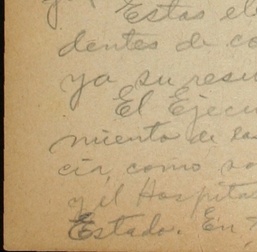 Estas ele
dentes de co
ya su resu
El Ejecu
miento de las
cia, como so
y el Hospita
Estado. En